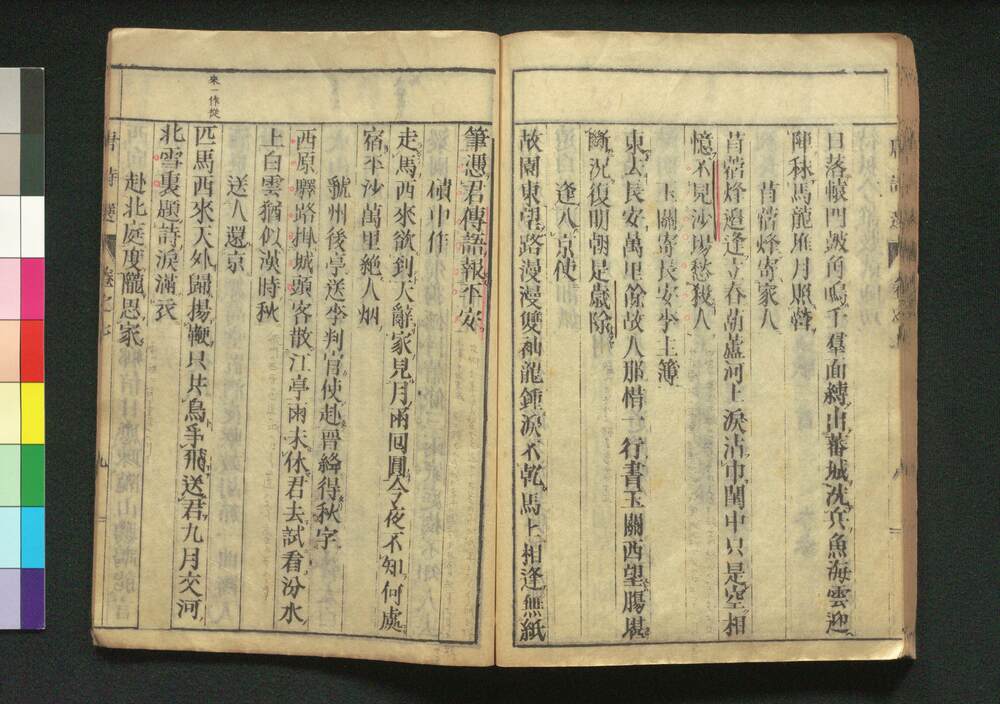 日落轅門鼓角鳴千羣面縛出蕃城洗兵魚海雲迎
陣秣馬龍堆月照營
苜蓿烽寄家人
苜蓿烽邊逢立春葫蘆河上淚沾巾閨中只是空相
憶不見沙場愁殺人
玉關寄長安李主簿
東去長安萬里餘故人那惜一行書玉關西望腸堪
斷況復明朝是歲除
逢入京使
故園東望路漫漫雙袖龍鍾淚不乾馬上相逢無紙
筆憑君傳語報平安
磧中作
走馬西來欲到天辭家見月兩回圓今夜不知何處
宿平沙萬里絶人烟
虢州後亭送李判官使赴晉絳得秋字
西原驛路掛城頭客散江亭雨未休君去試看汾水
上白雲猶似漢時秋
送人還京
匹馬西來天外歸揚鞭只共鳥爭飛送君九月交河
北雪裏題詩淚滿衣
赴北庭度隴思家
來一作從
唐詩選 卷之七 九